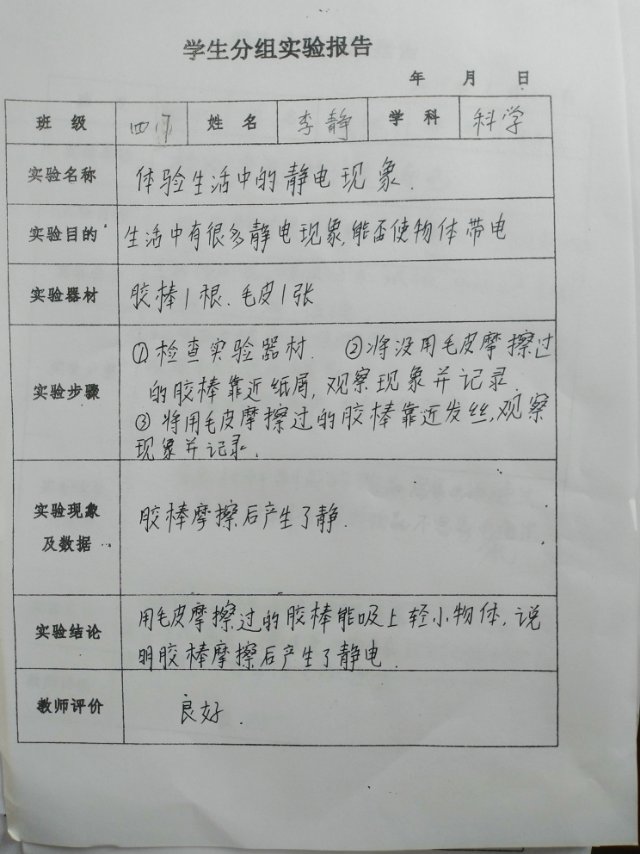 学生分组实验报告
年 月 日
班级 四 姓名 李静 学科 科学
实验名称 体验生活中的静电现象.
实验目的 生活中有很多静电现象,能否使物体带电
实验器材 胶棒1根、毛皮1张
实验步骤 ①检查实验器材. ②将没用毛皮摩擦过
的胶棒靠近纸屑,观察现象并记录.
③将用毛皮摩擦过的胶棒靠近发丝,观察
现象并记录.
实验现象
及数据 胶棒摩擦后产生了静.
实验结论 用毛皮摩擦过的胶棒能吸上轻小物体,说
明胶棒摩擦后产生了静电.
教师评价 良好.